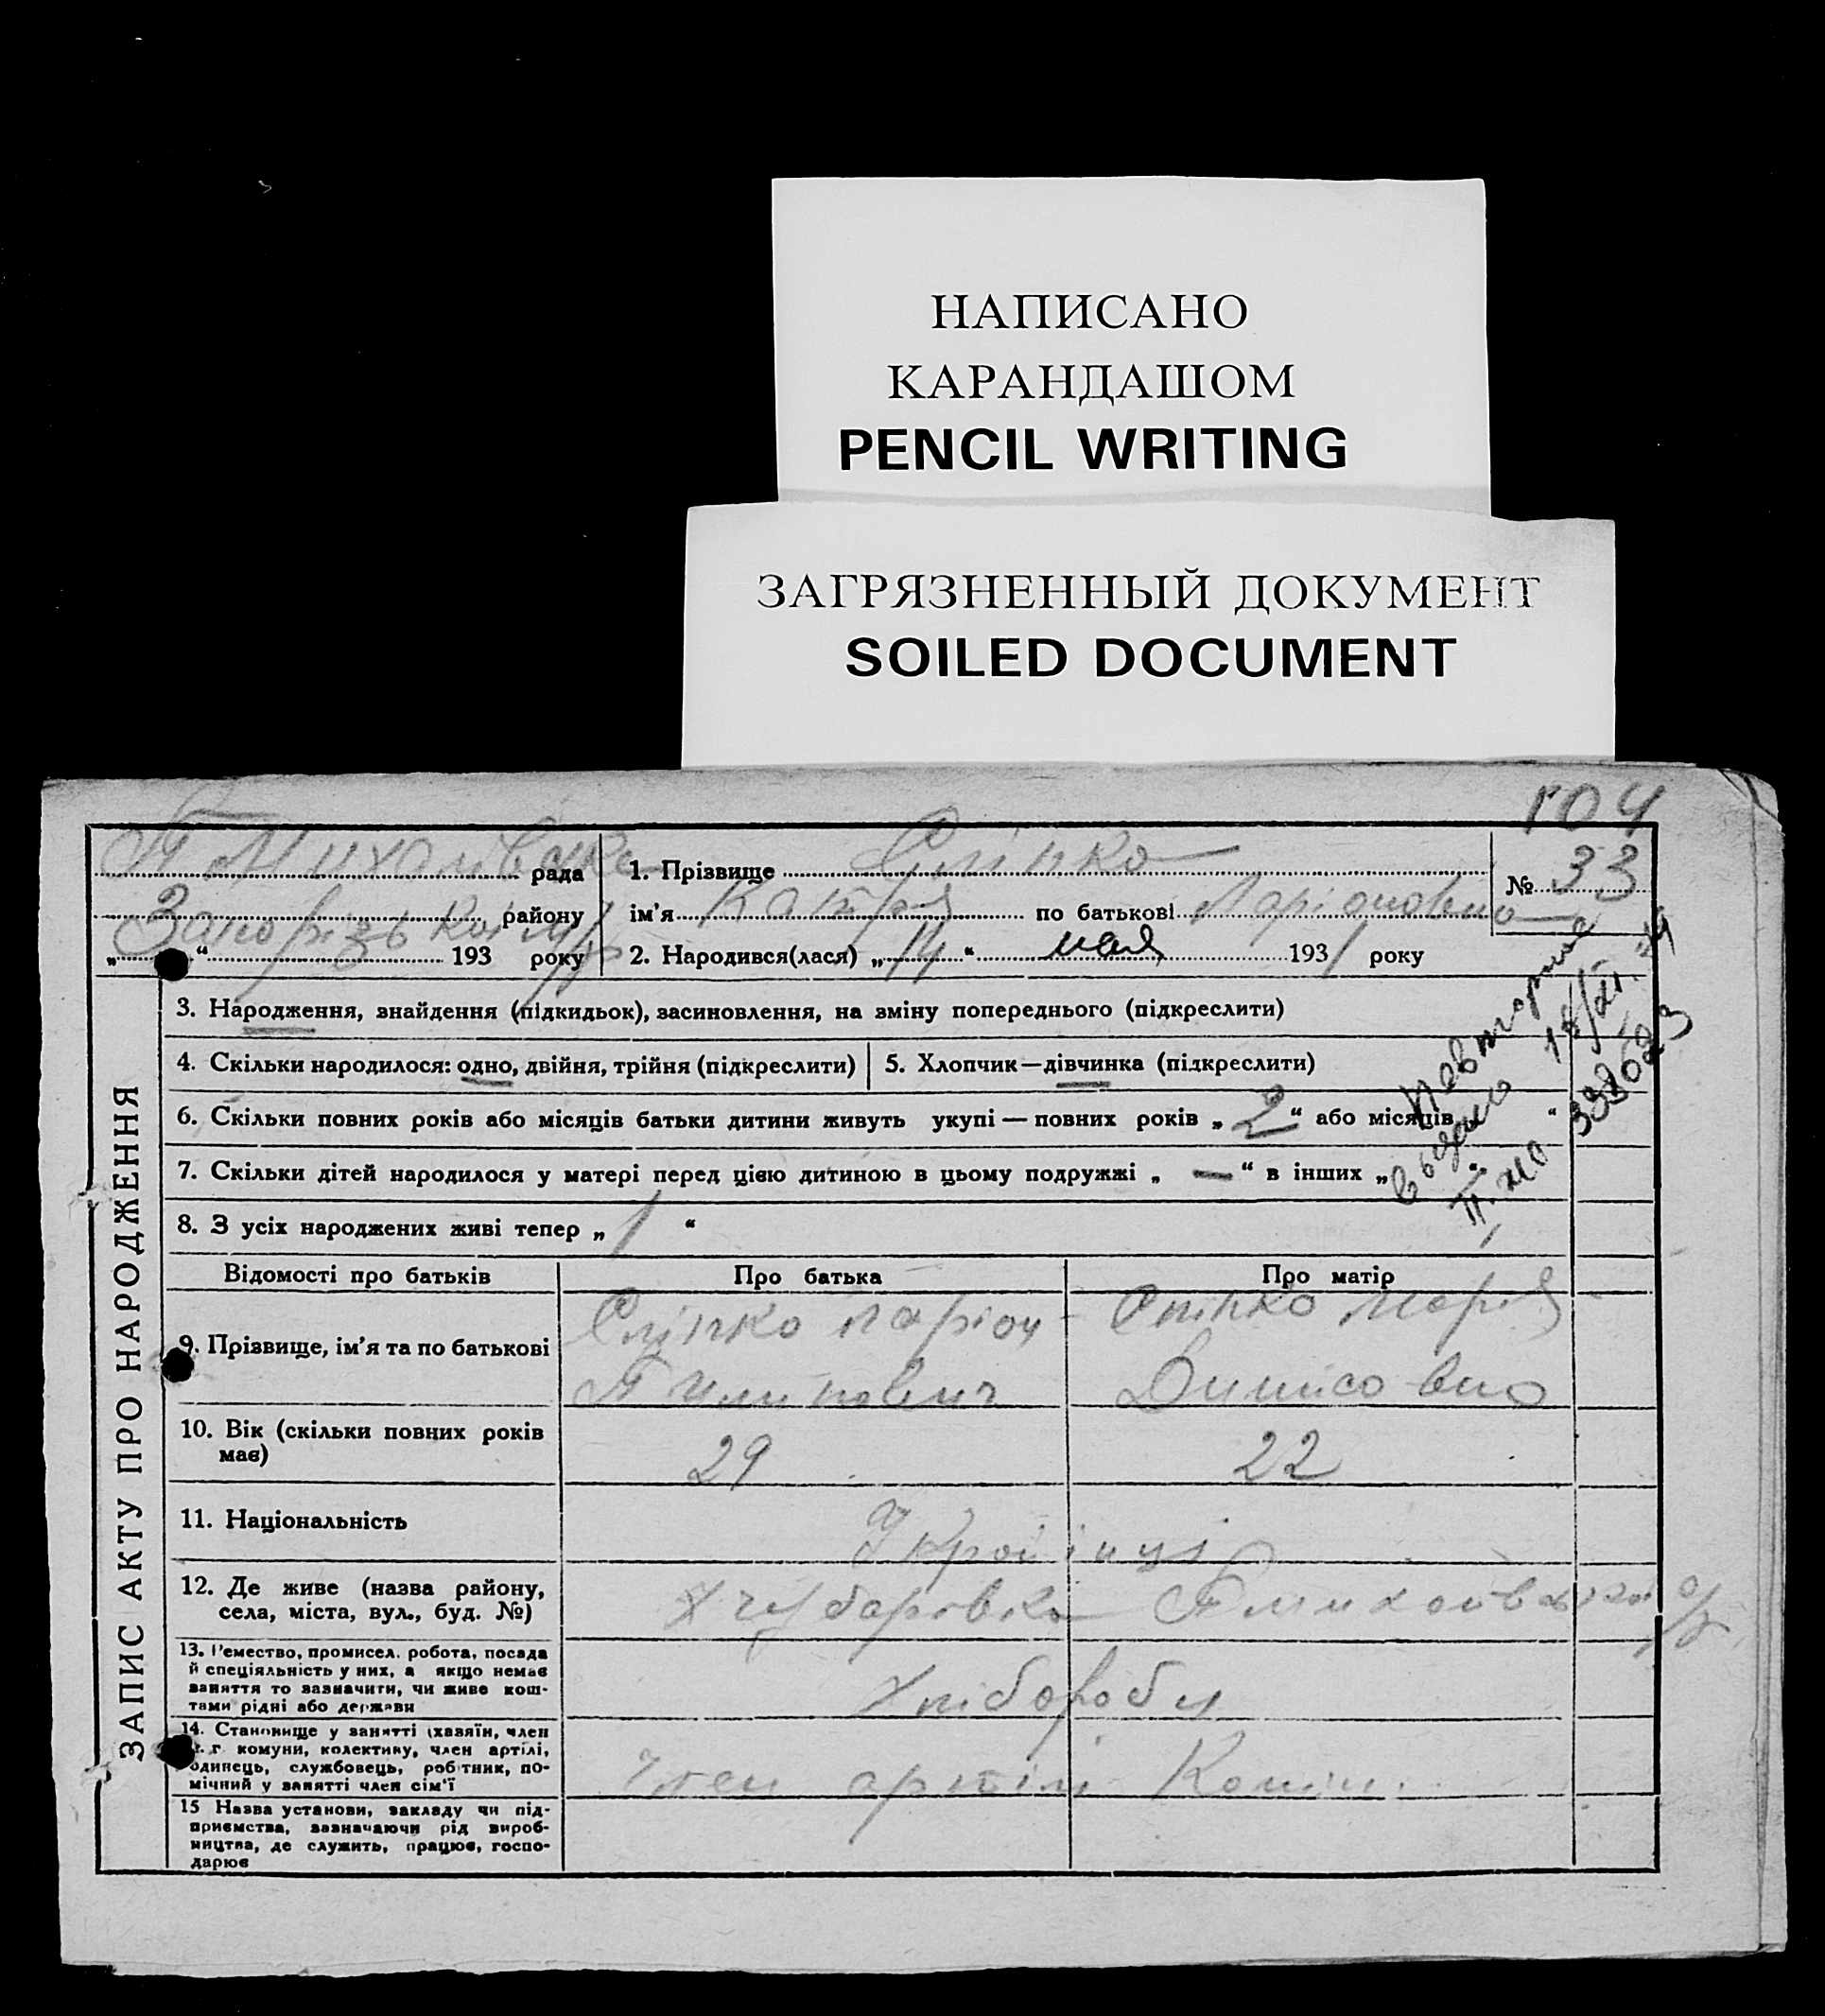 НАПИСАНО
КАРАНДАШОМ
PENCIL WRITING
ЗАГРЯЗНЕННЫЙ ДОКУМЕНТ
SOILED DOCUMENT
104
рада
району
„ “ 193 року
1. Прізвище Сліпко
ім’я Катря по батькові Ларіоновна
2. Народився(лася) „14“ мая 1931 року
№ 33
ЗАПИС АКТУ ПРО НАРОДЖЕННЯ
3. Народження, знайдення (підкидьок), засиновлення, на зміну попереднього (підкреслити)
4. Скільки народилося: одно, двійня, трійня (підкреслити)
5. Хлопчик—дівчинка (підкреслити)
6. Скільки повних років або місяців батьки дитини живуть укупі — повних років „2“ або місяців „ “
7. Скільки дітей народилося у матері перед цією дитиною в цьому подружжі „ — “ в інших „ “
8. З усіх народжених живі тепер „1 “
Повторное
выдано
Відомості про батьків
Про батька
Про матір
9. Прізвище, ім’я та по батькові
Сліпко Ларіон
Пилипович
Сліпко Марія
Динисовно
10. Вік (скільки повних років
має)
29
22
11. Національність
Українці
12. Де живе (назва району,
села, міста, вул., буд. №)
13. Ремество, промисел, робота, посада
й спеціяльність у них, а якщо немає
заняття то зазначити, чи живе кош-
тами рідні або держави
Хлібороби
14. Становище у занятті (хазяїн, член
с.-г. комуни, колективу, член артілі,
одинець, службовець, робітник, по-
мічний у занятті член сім’ї
Член артіли
15 Назва установи, закладу чи під-
приємства, зазначаючи рід вироб-
ництва, де служить, працює, госпо-
дарює